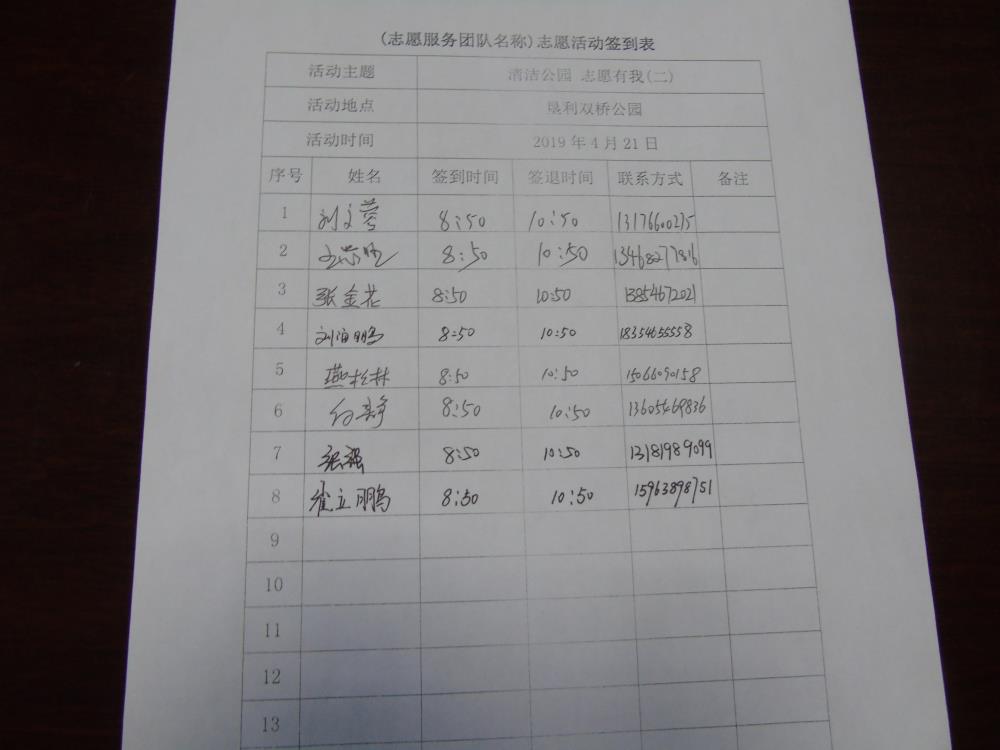 (志愿服务团队名称)志愿活动签到表
活动主题 清洁公园 志愿有我(二)
活动地点 垦利双桥公园
活动时间 2019年4月21日
序号 姓名 签到时间 签退时间 联系方式 备注
1 刘文蓉 8:50 10:50
2 8:50 10:50
3 张金花 8:50 10:50 13854672021
4 8:50 10:50 18354655558
5 燕松林 8:50 10:50 15066090158
6 8:50 10:50 13605469836
7 张强 8:50 10:50 13181989099
8 崔立鹏 8:50 10:50 15963898751
9
10
11
12
13